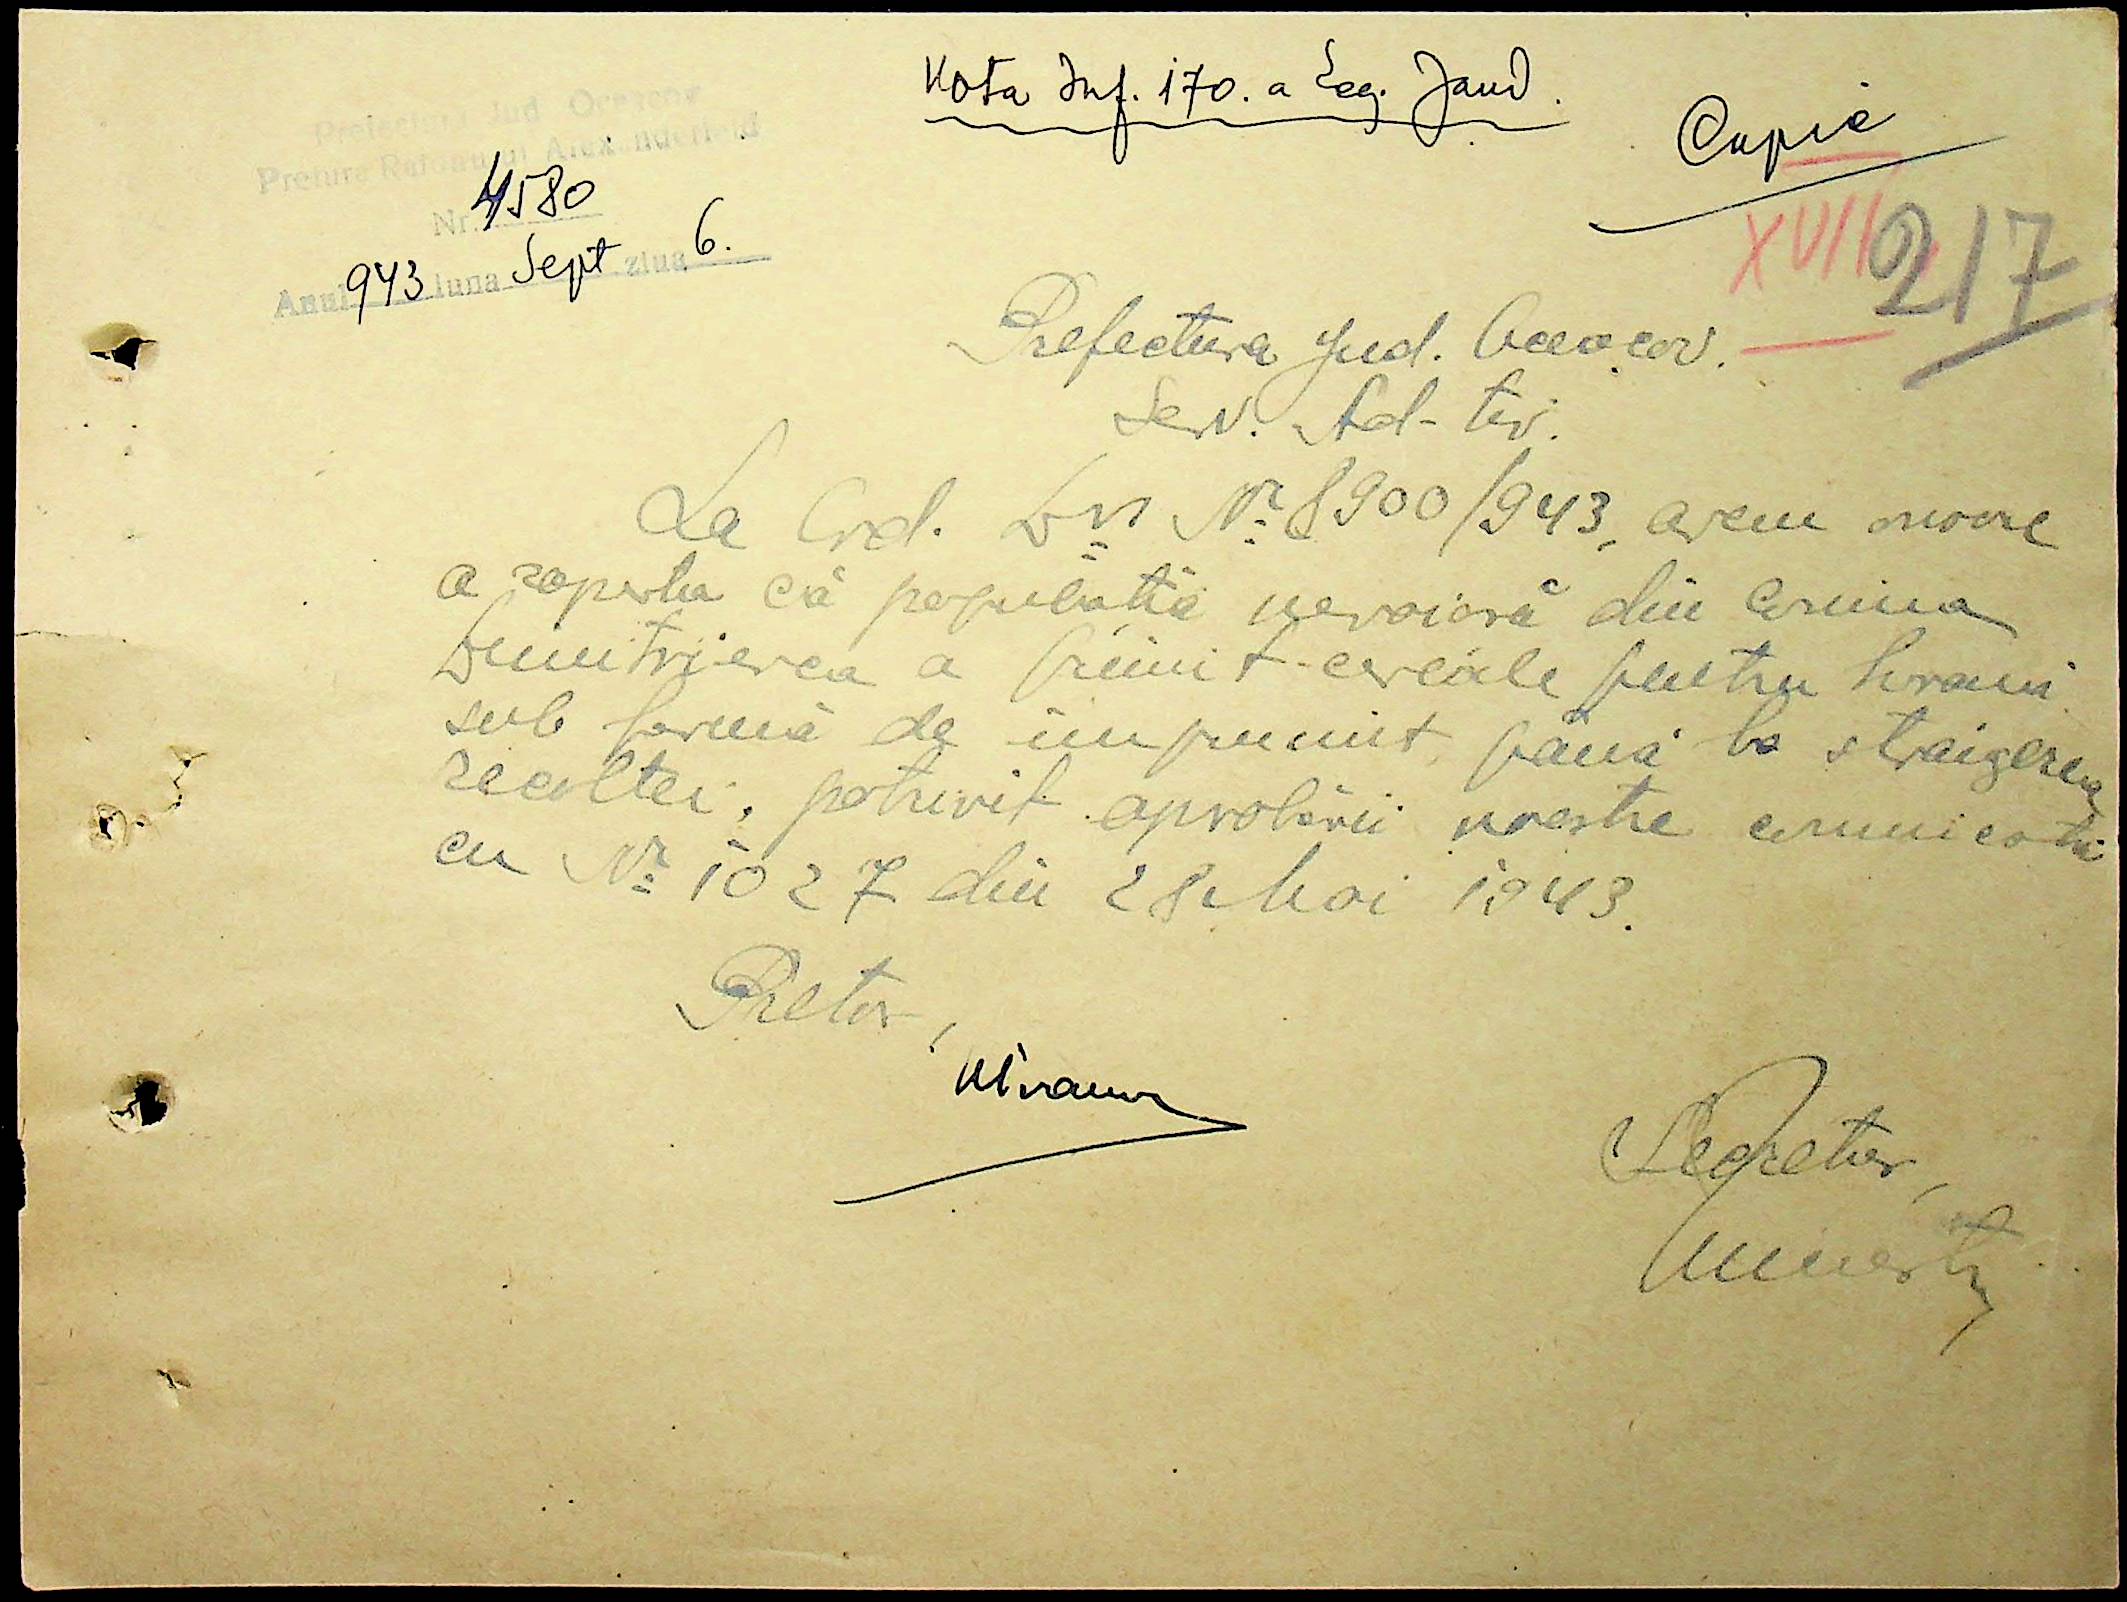 Nota Inf. 170. a Leg. Jand.
Copie
Prefectura Jud Oceacov
Pretura Raionului Alexanderfeld
Nr. 4580
Anul 943 luna Sept ziua 6.
XVII
217
Prefectura Jud. Oceacov.
Serv. Ad-tiv.
La Ord. Dvs Nr. 8900/943, avem onoare
a raporta că populația nevoiașă din comuna
Dumitrievca a primit cereale pentru hrană
sub formă de împrumut, până la strângerea
recoltei, potrivit aprobării noastre comunicată
cu Nr. 1027 din 28 Mai 1943.
Pretor,
Secretar,